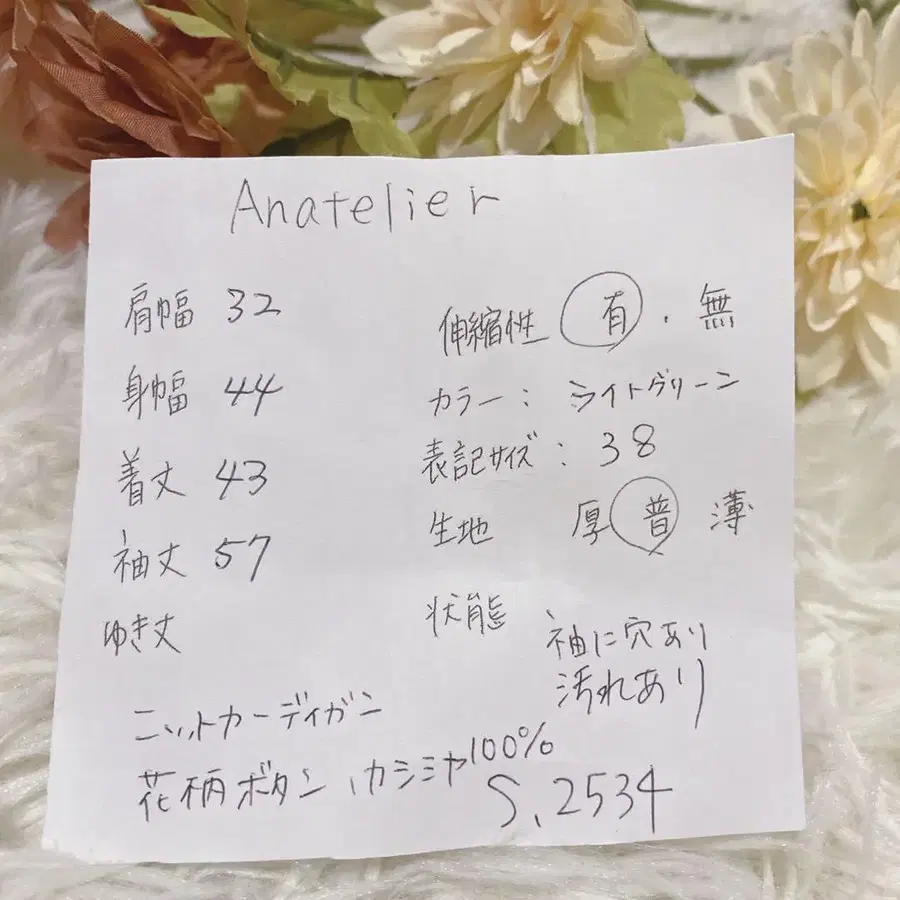 Anatelier
肩幅 32
身幅 44
着丈 43
袖丈 57
ゆき丈
伸縮性 有 . 無
カラー : ライトグリーン
表記サイズ : 38
生地 厚 普 薄
状態 袖に穴あり
汚れあり
ニットカーディガン
花柄ボタン、カシミヤ100%
S.2534